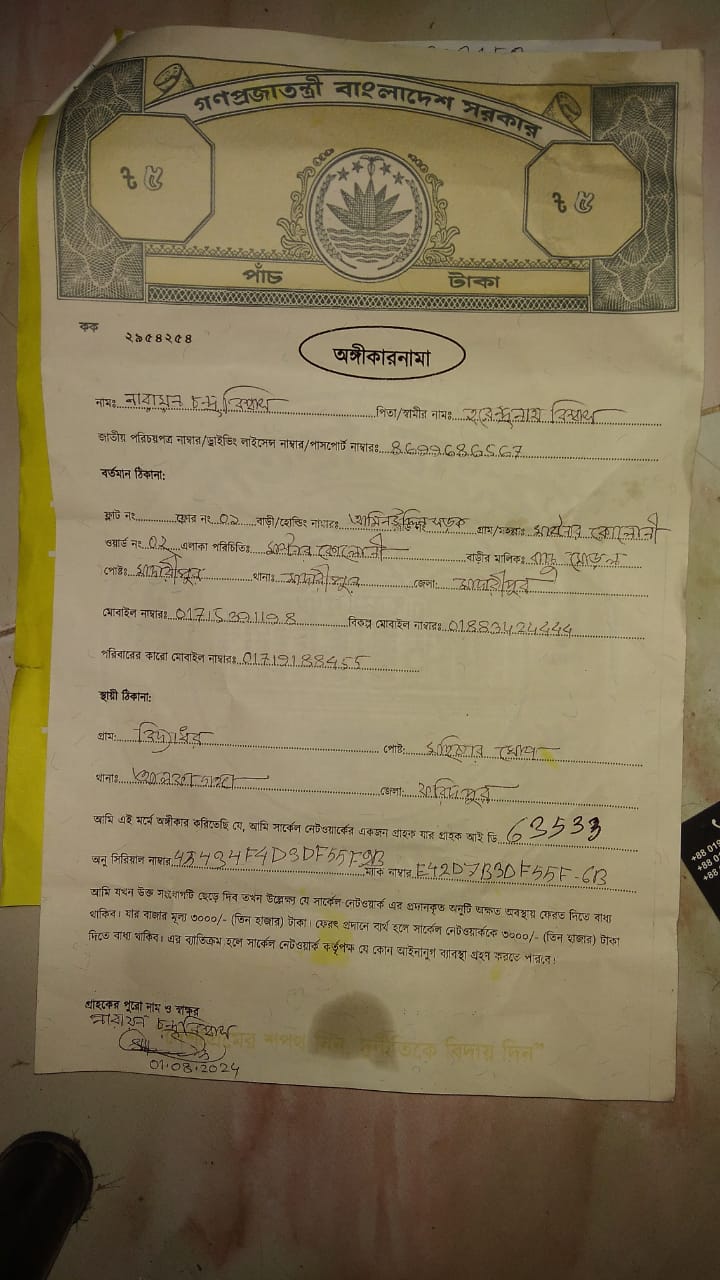 গণপ্রজাতন্ত্রী বাংলাদেশ সরকার
৳ ৫ ৳ ৫
পাঁচ টাকা
কক ২৯৫৪২৫৪
অঙ্গীকারনামা
নামঃ নারায়ন চন্দ্র বিশ্বাস পিতা/স্বামীর নাম: হরেন্দ্রনাথ বিশ্বাস
জাতীয় পরিচয়পত্র নাম্বার/ড্রাইভিং লাইসেন্স নাম্বার/পাসপোর্ট নাম্বারঃ 8699686567
বর্তমান ঠিকানা:
ফ্লাট নং ফ্লোর নং ০১ বাড়ী/হোল্ডিং নাম্বারঃ আমিনউদ্দিন সড়ক গ্রাম/মহল্লাঃ কোলোনী
ওয়ার্ড নং ০২ এলাকা পরিচিতিঃ কোলোনী বাড়ীর মালিকঃ
পোষ্টঃ মাদারীপুর থানাঃ মাদারীপুর জেলাঃ মাদারীপুর
মোবাইল নাম্বারঃ 01715391198 বিকল্প মোবাইল নাম্বারঃ 01883424444
পরিবারের কারো মোবাইল নাম্বারঃ 01719188455
স্থায়ী ঠিকানা:
গ্রাম: বিদ্যাধর পোষ্ট:
থানাঃ আলফাডাঙ্গা জেলা: ফরিদপুর
আমি এই মর্মে অঙ্গীকার করিতেছি যে, আমি সার্কেল নেটওয়ার্কের একজন গ্রাহক যার গ্রাহক আই ডি 63533
অনু সিরিয়াল নাম্বার 48434F4D9DF55F9B ম্যাক নাম্বার E42D7B3DF55F-6B
আমি যখন উক্ত সংযোগটি ছেড়ে দিব তখন উল্লেক্ষ্য যে সার্কেল নেটওয়ার্ক এর প্রদানকৃত অনুটি অক্ষত অবস্থায় ফেরত দিতে বাধ্য
থাকিব। যার বাজার মূল্য ৩০০০/- (তিন হাজার) টাকা। ফেরৎ প্রদানে ব্যর্থ হলে সার্কেল নেটওয়ার্ককে ৩০০০/- (তিন হাজার) টাকা
দিতে বাধ্য থাকিব। এর ব্যতিক্রম হলে সার্কেল নেটওয়ার্ক কর্তৃপক্ষ যে কোন আইনানুগ ব্যাবস্থা গ্রহন করতে পারবে।
গ্রাহকের পুরো নাম ও স্বাক্ষর
নারায়ন চন্দ্র বিশ্বাস
শপথ নিন, দুর্নীতিকে বিদায় দিন"
01.08.2024
+88 019
+88 0
+88